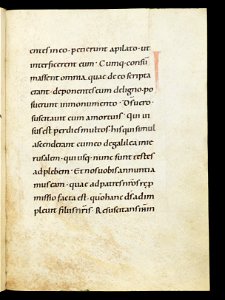 entes in eo · petierunt a pilato · ut
interficerent eum · Cumq; consum
massent omnia, quae de eo scripta
erant · deponentes eum de ligno · po
suerunt in monumento · Ds uero ·
suscitauit eum a mortuis · Qui ui
sus est per dies multos · his qui simul
ascenderant cum eo de galilea in ie
rusalem · qui usq; nunc sunt testes
ad plebem · Et nos uobis annuntia
mus eam · quae ad patres nr̄os rep
missio facta est · quo hanc ds ad im
pleuit filiis nr̄is · Resuscitans ih̄m